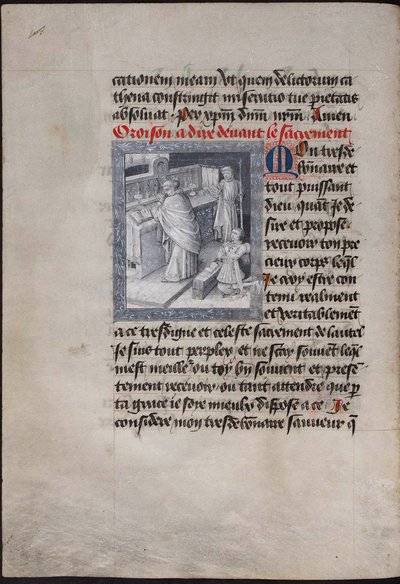 cationem meam Vt quem delictorum ca
thena constringit miseratio tue pietatis
absoluat. Per xpm̄ dnm̄ nrm̄ Amen
Oroison a dire deuant le sacrement
Mon tresde
bonnaire et
tout puissant
dieu quāt Je de
sire et propose
receuoir ton pre
cieux corps leq̄l
Je croy estre con
tenu realment
et veritablemēt
a ce tresdigne et celeste sacrement de lautel
Je suis tout perplex et ne scay souuēt leq̄l
mest meilleʳ ou toy bn̄ souuent et prese
tement receuoir ou tant attendre que p
ta grace ie soie mieulx dispose a ce Je
considere mon tresdebonnaire sauueur q̄